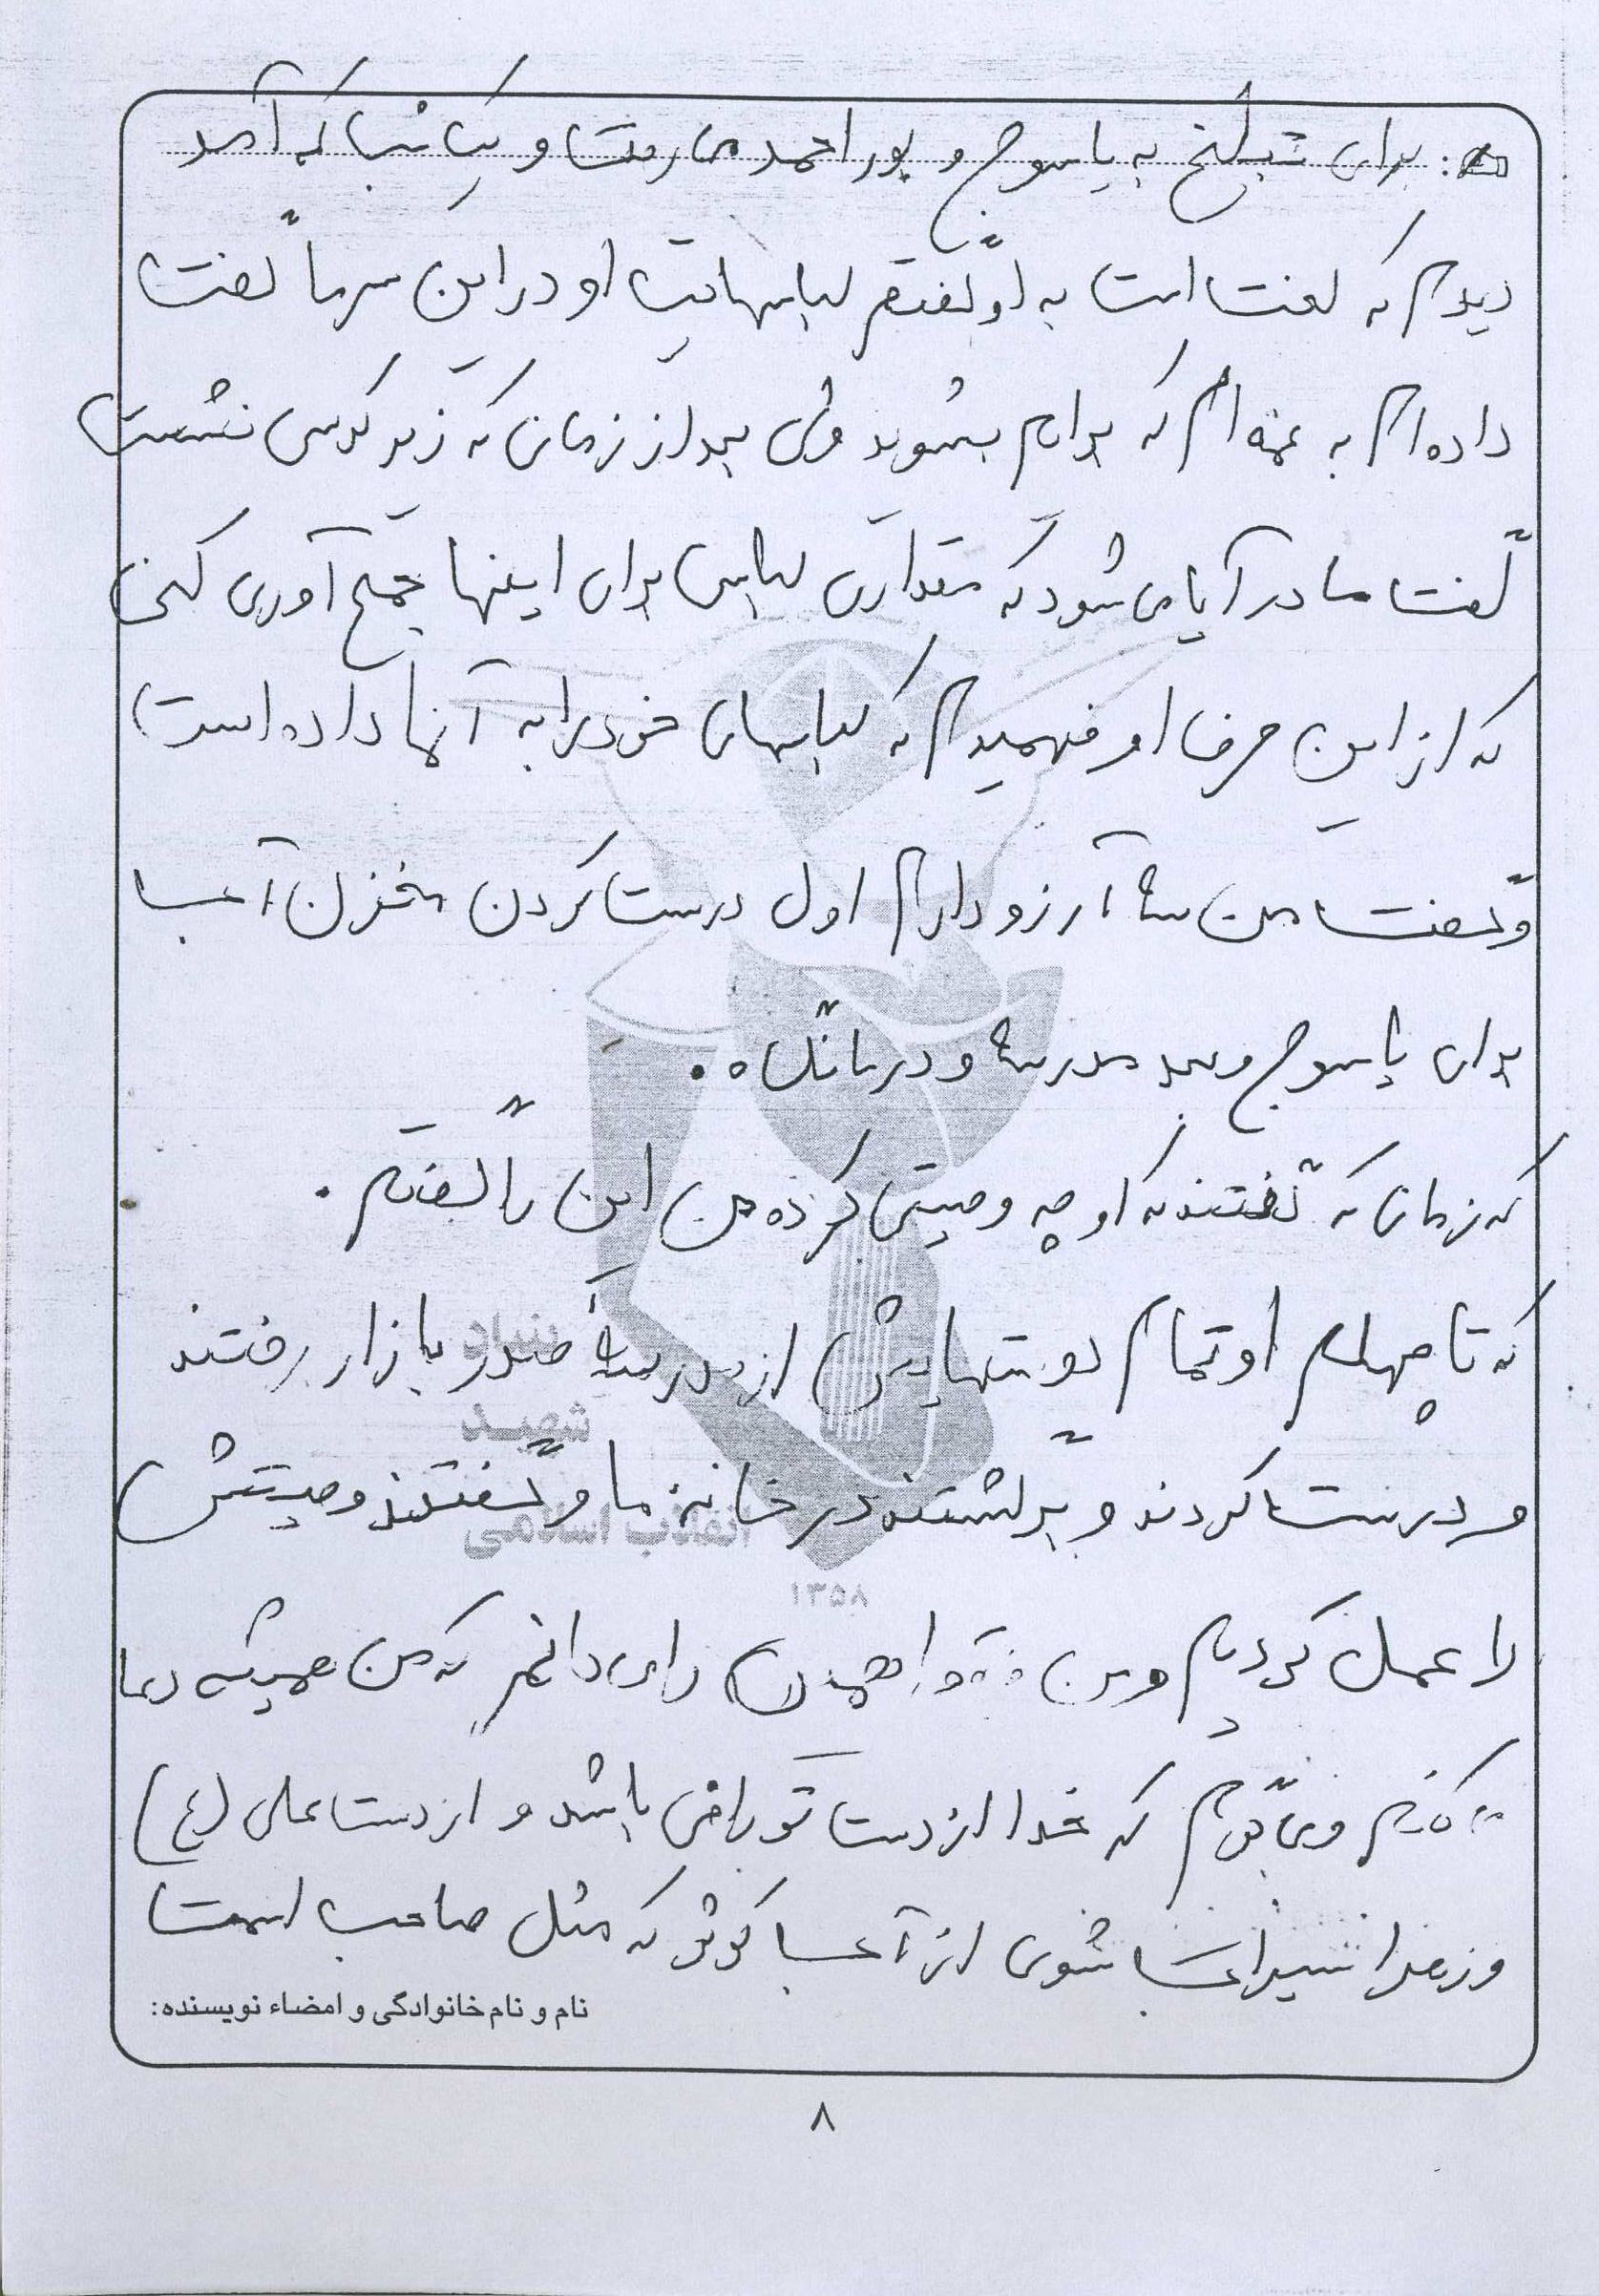 برای تبلیغ به یاسوج و بویر احمد می رفت و یک شب که آمد
دیدم که لخت است به او گفتم لباسهایت او در این سرما گفت
داده ام به عمه ام که برایم بشوید ولی بعد از زمانی که زیر کرسی نشست
گفت مادر آیا می شود که مقداری لباس برای اینها جمع آوری کنی
که از این حرف او فهمیدم که لباسهای خود را به آنها داده است
و گفت من سه آرزو دارم اول درست کردن مخزن آب
برای یاسوج و بعد مدرسه و درمانگاه .
که زمانی که گفتند که او چه وصیتی کرده من این را گفتم .
که تا چهلم او تمام دوستهایش از مدرسۀ صدر بازار رفتند
و درست کردند و برگشتند در خانه ما و گفتند وصیتش
را عمل کردیم و من همین را می دانم که من همیشه دعا
می کنم و می گویم که خدا از دست تو راضی باشد و از دست علی (ع)
و زهرا سیراب شوی از آب کوثر که مثل صاحب اسمت
نام و نام خانوادگی و امضاء نویسنده:
۸
بنیاد
شهید
انقلاب اسلامی
۱۳۵۸